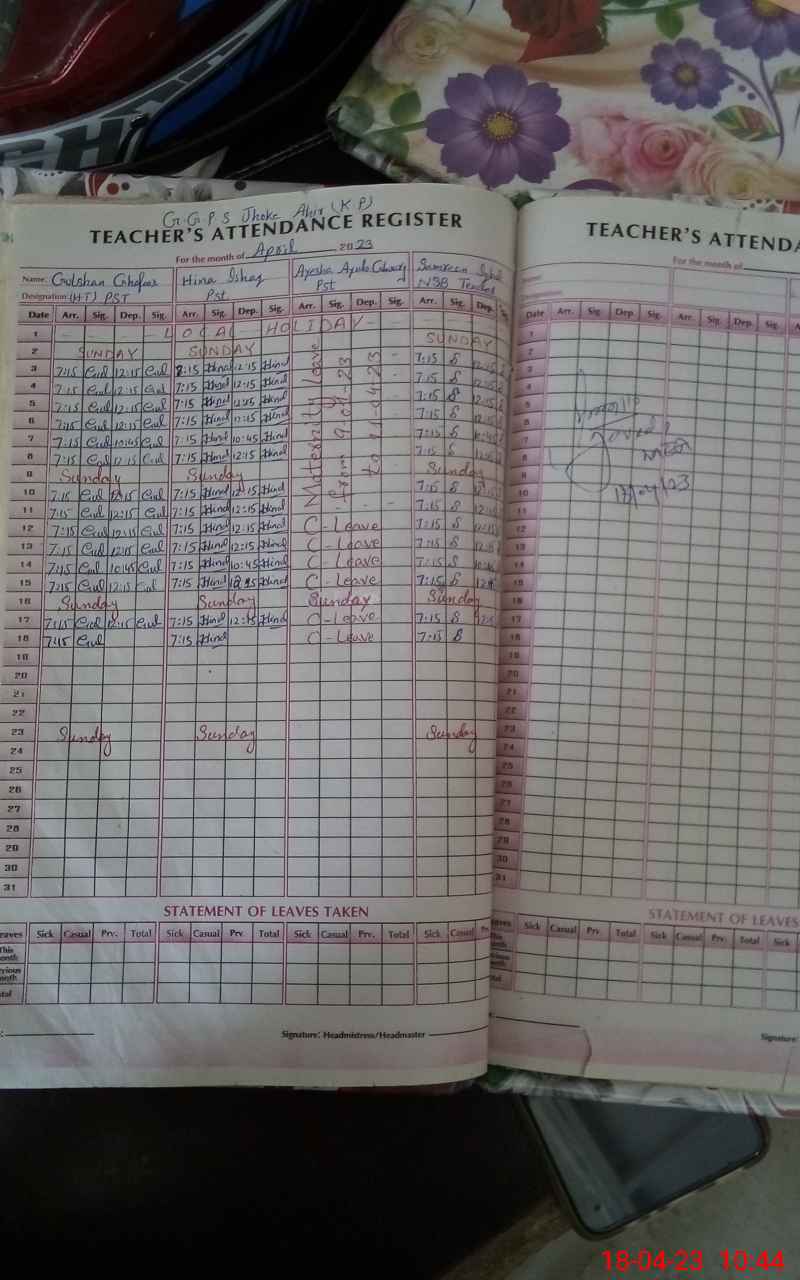 G.G.P.S Jhoke Ahir (KP)
TEACHER'S ATTENDANCE REGISTER
For the month of April 2023
Name: Gulshan Ghafoor Hina Ishaq Ayesha Samreen
Designation: (HT) PST Pst Pst NSB Teacher
Date Arr. Sig. Dep. Sig. Arr. Sig. Dep. Sig. Arr. Sig. Dep. Sig. Arr. Sig. Dep.
1 LOCAL HOLIDAY
2 SUNDAY SUNDAY SUNDAY
3 7:15 Gul 12:15 Gul 7:15 Hina 12:15 Hina 7:15 S 12:15
4 7:15 Gul 12:15 Gul 7:15 Hina 12:15 Hina 7:15 S 12:15
5 7:15 Gul 12:15 Gul 7:15 Hina 12:15 Hina 7:15 S 12:15
6 7:15 Gul 12:15 Gul 7:15 Hina 12:15 Hina 7:15 S 12:15
7 7:15 Gul 10:45 Gul 7:15 Hina 10:45 Hina 7:15 S 10:45
8 7:15 Gul 12:15 Gul 7:15 Hina 12:15 Hina 7:15 S 12:15
Maternity leave
from
to 11-04-23
9 Sunday Sunday Sunday
10 7:15 Gul 12:15 Gul 7:15 Hina 12:15 Hina 7:15 S
11 7:15 Gul 12:15 Gul 7:15 Hina 12:15 Hina 7:15 S 12:15
12 7:15 Gul 12:15 Gul 7:15 Hina 12:15 Hina C-Leave 7:15 S 12:15
13 7:15 Gul 12:15 Gul 7:15 Hina 12:15 Hina C-Leave 7:15 S 12:15
14 7:45 Gul 10:45 Gul 7:15 Hina 10:45 Hina C-Leave 7:15 S
15 7:45 Gul 12:15 Gul 7:15 Hina 12:15 Hina C-Leave 7:15 S
16 Sunday Sunday Sunday Sunday
17 7:15 Gul 12:15 Gul 7:15 Hina 12:15 Hina C-Leave 7:15 S
18 7:45 Gul 7:15 Hina C-Leave 7:15 S
19
20
21
22
23 Sunday Sunday Sunday
24
25
26
27
28
29
30
31
STATEMENT OF LEAVES TAKEN
eaves Sick Casual Prv. Total Sick Casual Prv. Total Sick Casual Prv. Total Sick Casual
This
onth
vious
onth
tal
Signature: Headmistress/Headmaster
TEACHER'S ATTENDA
For the month of
Name:
Designation:
Date Arr. Sig. Dep. Sig. Arr. Sig. Dep. Sig. Arr.
1
2
3
4
5
6
7
8
9
10
11
12
13
14
15
16
17
18
19
20
21
22
23
24
25
26
27
28
29
30
31
STATEMENT OF LEAVES
eaves Sick Casual Prv. Total Sick Casual Prv. Total Sick
This
onth
vious
onth
tal
Signature:
18-04-23 10:44